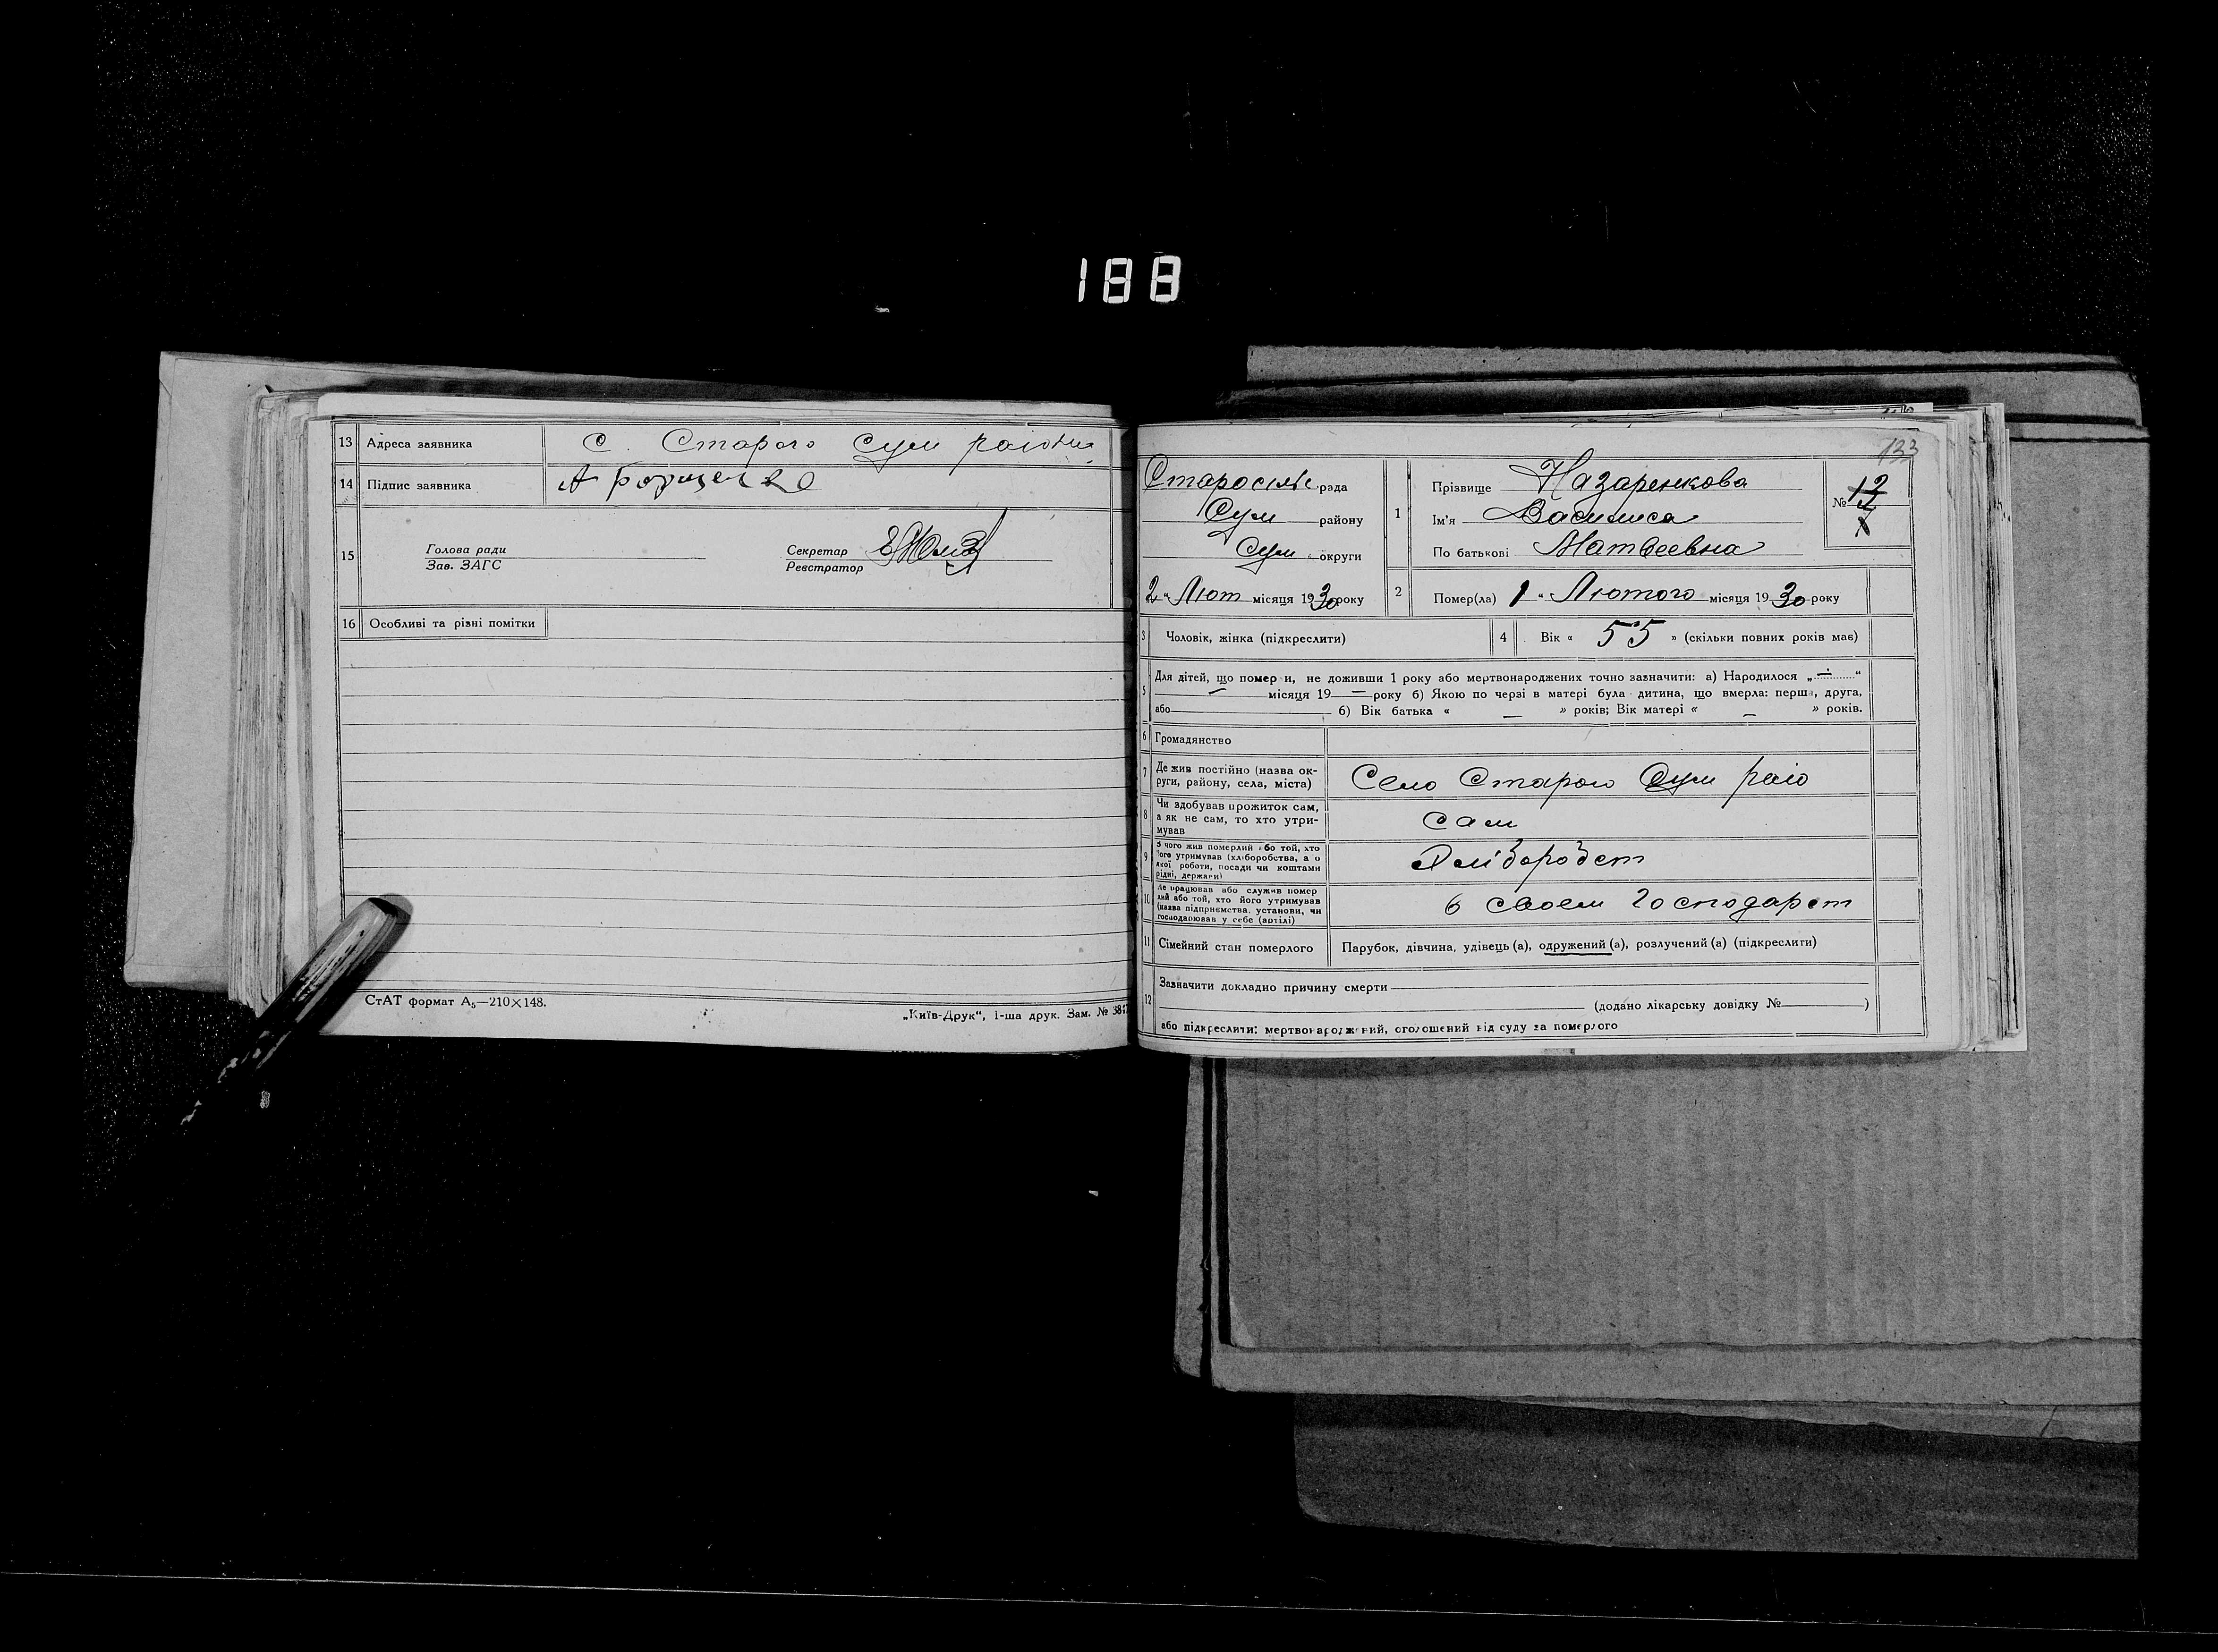 188
13 Адреса заявника С. Старого Сум району
14 Підпис заявника А Борщенко
15 Голова ради
Зав. ЗАГС
Секретар
Реєстратор
16 Особливі та різні помітки
СтАТ формат А₅—210×148.
„Київ-Друк“, 1-ша друк. Зам. № 3817
133
Старосіль рада
Сум району
Сум округи
„2„ Лют місяця 1930 року
1 Прізвище Назаренкова
Ім'я Василиса
По батькові Матвеевна
№ 12
7
2 Помер(ла) 1 „ Лютого місяця 1930 року
3 Чоловік, жінка (підкреслити)
4 Вік « 55 » (скільки повних років має)
5 Для дітей, що померли, не доживши 1 року або мертвонароджених точно зазначити: а) Народилося „—“
— місяця 19 — року б) Якою по черзі в матері була дитина, що вмерла: перша, друга,
або б) Вік батька « — » років; Вік матері « — » років.
6 Громадянство
7 Де жив постійно (назва ок-
руги, району, села, міста) Село Старого Сум раіо
8 Чи здобував прожиток сам,
а як не сам, то хто утри-
мував сам
9 З чого жив померлий або той, хто
його утримував (хліборобства, а о
якої роботи, посади чи коштами
рідні, держави) Хліборобст
10 Де працював або служив помер
лий або той, хто його утримував
(назва підприємства, установи, чи
господарював у себе (артілі) в своем господарст
11 Сімейний стан померлого Парубок, дівчина, удівець (а), одружений (а), розлучений (а) (підкреслити)
12 Зазначити докладно причину смерти
(додано лікарську довідку № )
або підкреслити: мертвонароджений, оголошений від суду за померлого